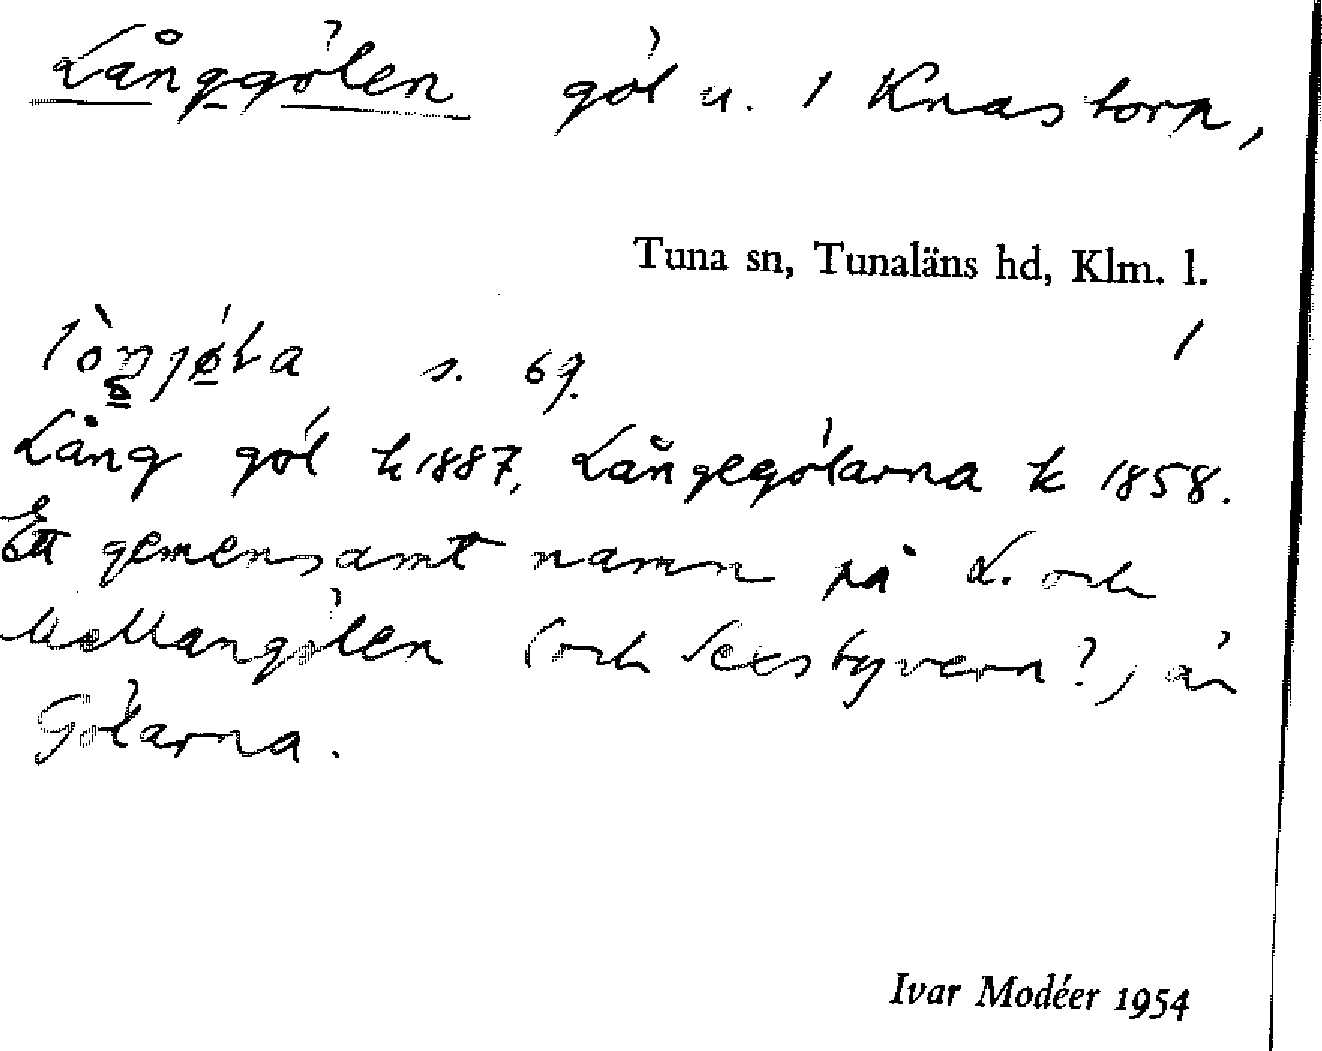 Långgölen göl u. 1 Knastorp,
Tuna sn, Tunaläns hd, Klm. l.
s. 69.
Lång göl k 1887, Långegölarna k 1858.
Ett gemensamt namn på L. och
Mellangölen (och Sexsbyvern?) är
Gölarna.
Ivar Modéer 1954